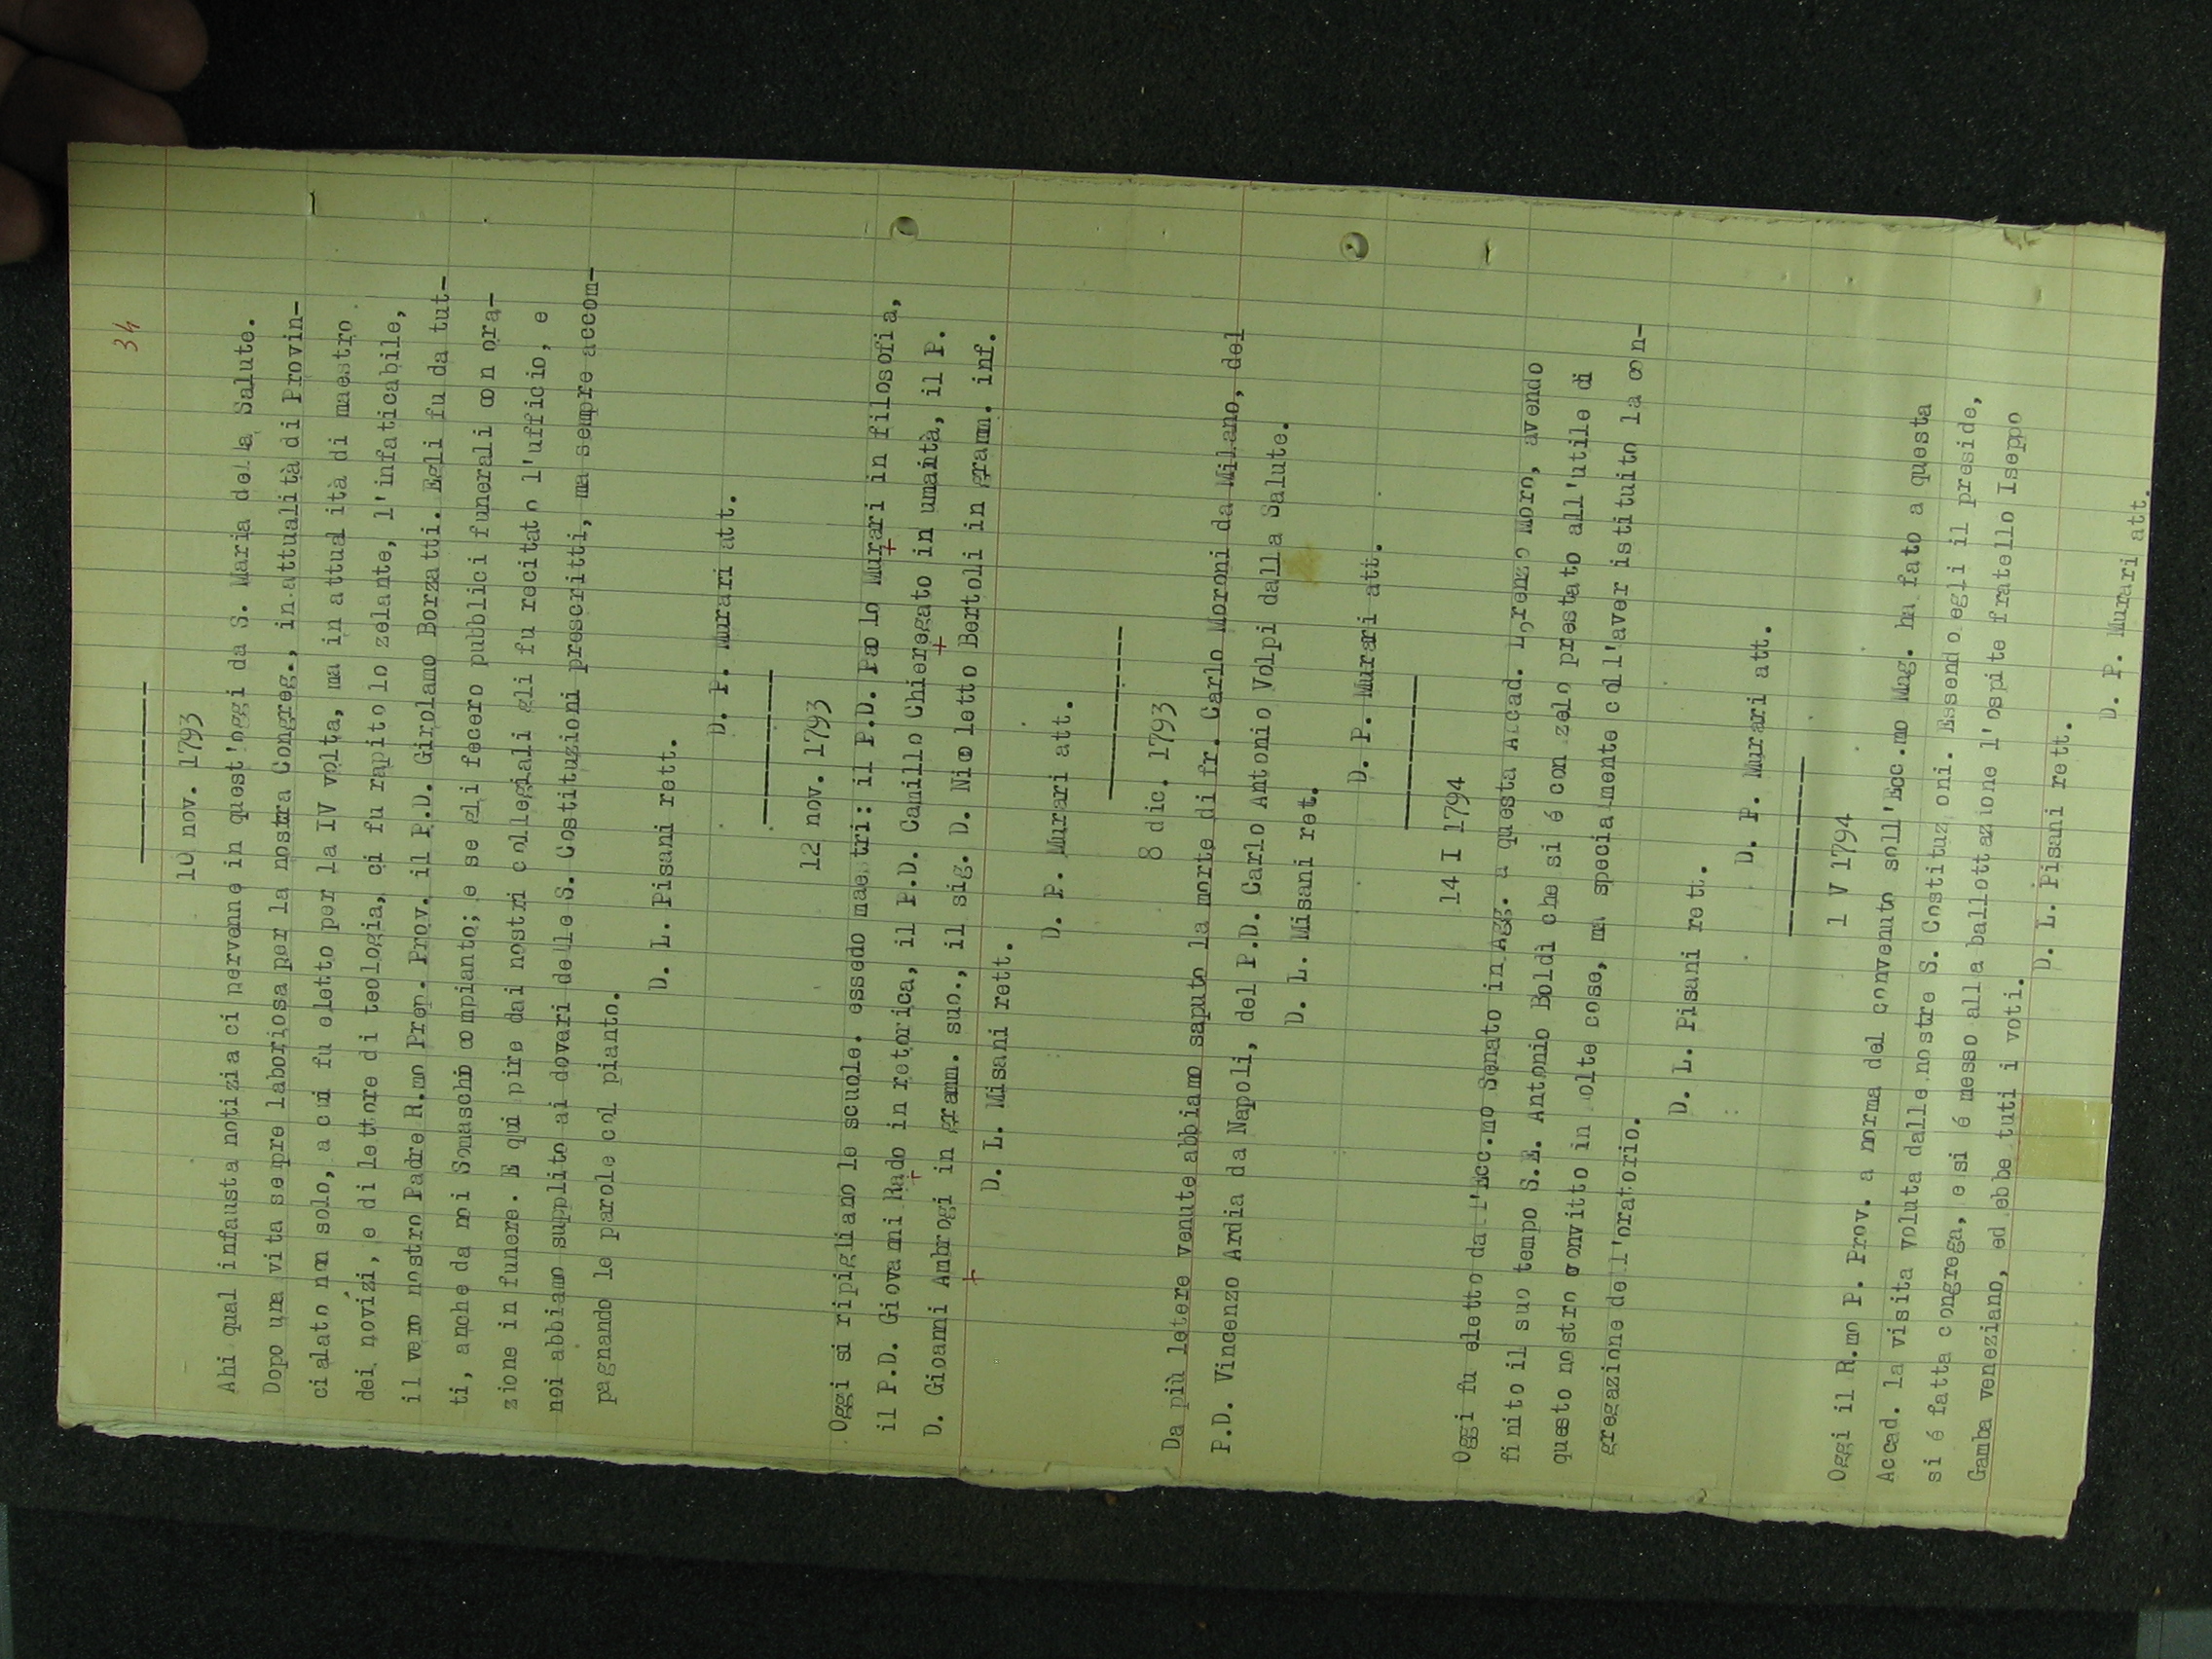 34
10 nov. 1793
Ahi qual infausta notizia ci pervenne in quest'oggi da S. Maria della Salute.
Dopo una vita sepre laboriosa per la nostra Congreg., in attualità di Provin-
cialato non solo, a cui fu eletto per la IV volta, ma in attualità di maestro
dei novizi, e di lettore di teologia, ci fu rapito lo zelante, l'infaticabile,
il vero nostro Padre R.mo Prep. Prov. il P.D. Girolamo Borzatti. Egli fu da tut-
ti, anche da noi Somaschi compianto; e se gli fecero pubblici funerali con ora-
zione in funere. E qui pire dai nostri collegiali gli fu recitato l'ufficio, e
noi abbiamo supplito ai doveri delle S. Costituzioni prescritti, ma sempre accom-
pagnando le parole col pianto.
D. L. Pisani rett.
D. P. Murari att.
12 nov. 1793
Oggi si ripigliano le scuole. essedo maetri: il P.D. Paolo Murari in filosofia,
il P.D. Giovanni Rado in retorica, il P.D. Camillo Chieregato in umaità, il P.
D. Gioanni Ambrogi in gramm. suo., il sig. D. Nicoletto Bertoli in gramm. inf.
D. L. Misani rett.
D. P. Murari att.
8 dic. 1793
Da più lettere venute abbiamo saputo la morte di fr. Carlo Morroni da Milano, del
P.D. Vincenzo Ardia da Napoli, del P.D. Carlo Antonio Volpi dalla Salute.
D. L. Misani ret.
D. P. Murari att.
14 I 1794
Oggi fu eletto dall'Ecc.mo Senato in Agg. a questa Accad. Lorenzo Moro, avendo
finito il suo tempo S.E. Antonio Boldì che si é con zelo prestato all'utile di
questo nostro convitto in olte cose, ma specialmente coll'aver istituito la con-
gregazione dell'oratorio.
D. L. Pisani rett.
D. P. Murari att.
1 V 1794
Oggi il R.mo P. Prov. a norma del convenuto soll'Ecc.mo Mag. ha fato a questa
Accad. la visita voluta dalle nostre S. Costituzioni. Essendo egli il preside,
si é fatta congrega, e si é messo alla ballottazione l'ospite fratello Iseppo
Gamba veneziano, ed ebbe tuti i voti.
D. L. Pisani rett.
D. P. Murari att.